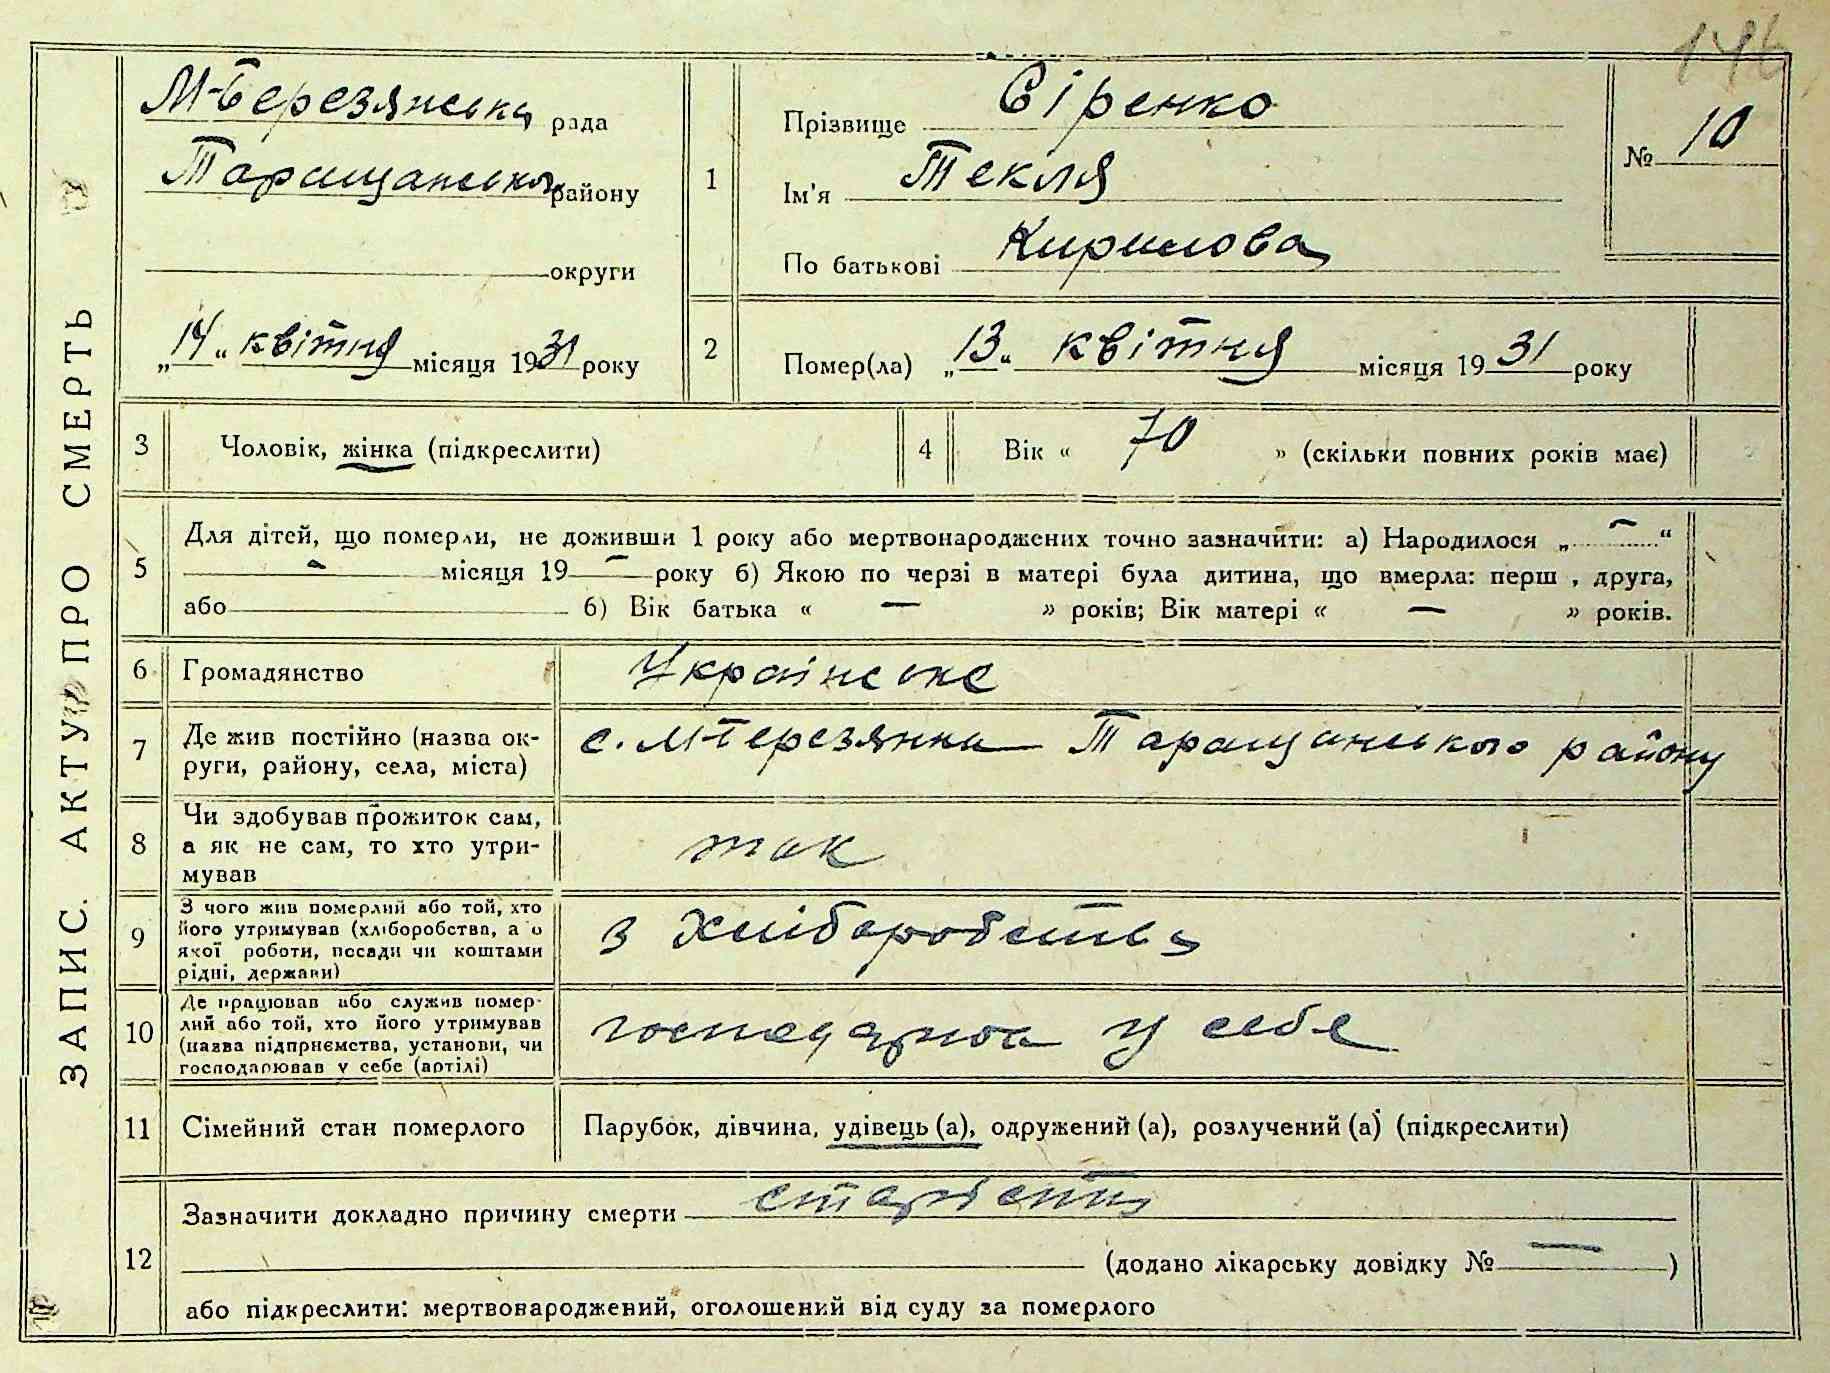 146
ЗАПИС АКТУ ПРО СМЕРТЬ
М-Березянська рада
Таращанського району
округи
„14“ квітня місяця 1931 року
1
Прізвище Сіренко
Ім'я Текля
По батькові Кирилова
№ 10
2
Помер(ла) „13“ квітня місяця 1931 року
3
Чоловік, жінка (підкреслити)
4
Вік « 70 » (скільки повних років має)
5
Для дітей, що померли, не доживши 1 року або мертвонароджених точно зазначити: а) Народилося „ — “
— місяця 19 — року б) Якою по черзі в матері була дитина, що вмерла: перш , друга,
або б) Вік батька « — » років; Вік матері « — » років.
6
Громадянство Українське
7
Де жив постійно (назва ок-
руги, району, села, міста)
с. М-Березянка Таращанського району
8
Чи здобував прожиток сам,
а як не сам, то хто утри-
мував
так
9
З чого жив померлий або той, хто
його утримував (хліборобства, а о
якої роботи, посади чи коштами
рідні, держави)
з Хліборобства
10
Де працював або служив помер-
лий або той, хто його утримував
(назва підприємства, установи, чи
господарював у себе (артілі)
у себе
11
Сімейний стан померлого
Парубок, дівчина, удівець (а), одружений (а), розлучений (а) (підкреслити)
12
Зазначити докладно причину смерти
(додано лікарську довідку № — )
або підкреслити: мертвонароджений, оголошений від суду за померлого